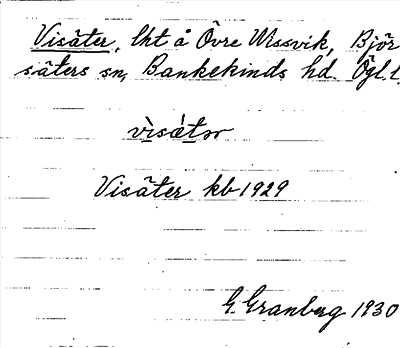 Visäter, lht å Övre Ulssvik, Björ
säters sn, Bankekinds hd. Ögl. l.
vìsǽtor
Visäter kb 1929
G. Granberg 1930